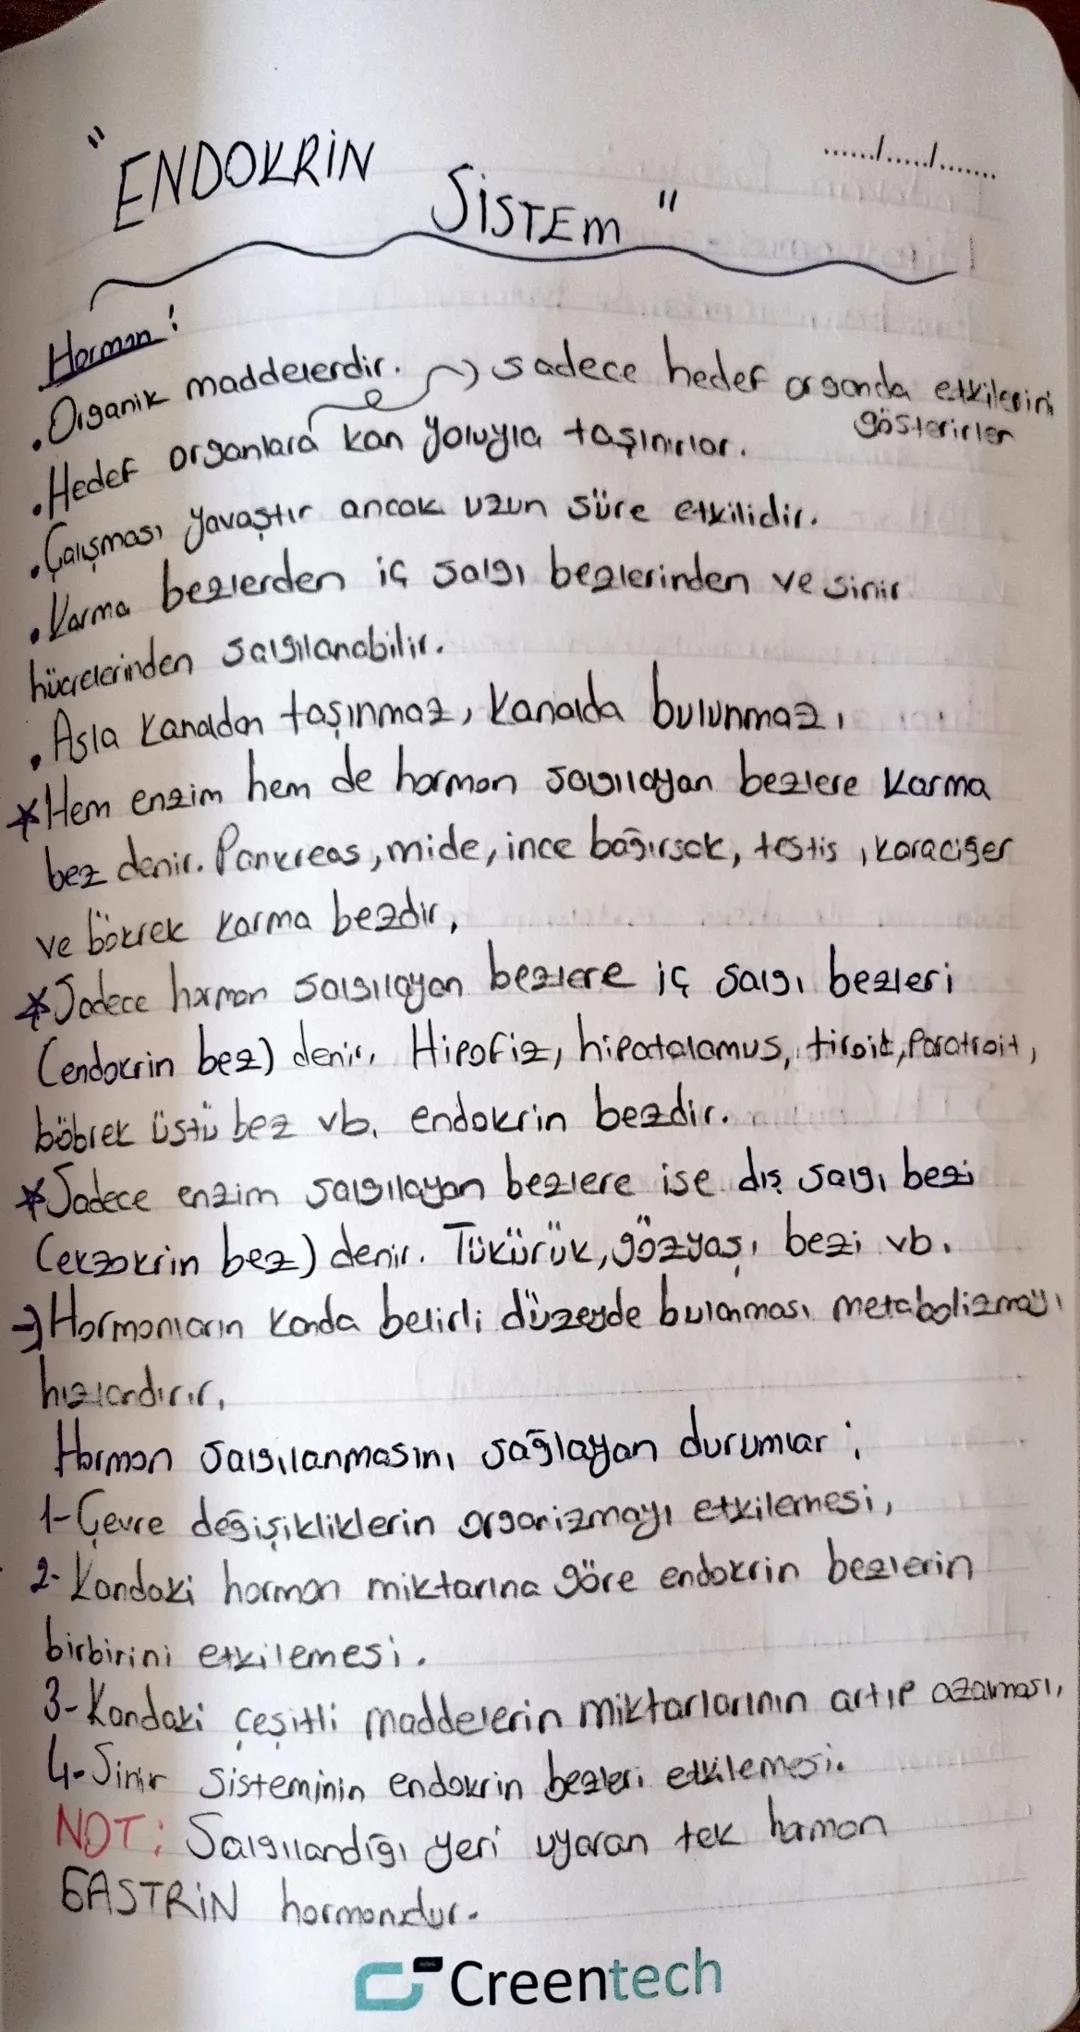 "ENDOKRİN
SİSTEM"
....../....../.......
Hormon:
• Organik maddelerdir. → sadece hedef organda etkilerini
gösterirler
• Hedef organlara kan yoluyla taşınırlar.
• Çalışması yavaştır ancak uzun süre etkilidir.
• Karma bezlerden iç salgı bezlerinden ve sinir
hücrelerinden salgılanabilir.
• Asla kanaldan taşınmaz, kanalda bulunmaz.
*Hem enzim hem de hormon salgılayan bezlere karma
bez denir. Pankreas, mide, ince bağırsak, testis, karaciğer
ve bökrek karma bezdir,
*Sadece hormon salgılayan bezlere iç salgı bezleri
(endokrin bez) denir. Hipofiz, hipotalamus, tiroit, Paratroit,
böbrek üstü bez vb. endokrin bezdir.
*Sadece enzim salgılayan bezlere ise dış salgı bezi
(ekzokrin bez) denir. Tükürük, gözyaşı bezi vb.
→ Hormonların kanda belirli düzeyde bulunması metabolizmayı
hızlandırır,
Hormon salgılanmasını sağlayan durumlar;
1-Çevre değişikliklerin organizmayı etkilemesi,
2-Kandaki hormon miktarına göre endokrin bezlerin
birbirini etkilemesi.
3-Kandaki çeşitli maddelerin miktarlarının artıp azalması,
4-Sinir sisteminin endokrin bezleri etkilemesi.
NOT: Salgılandığı yeri uyaran tek hormon
GASTRİN hormondur.
Creentech